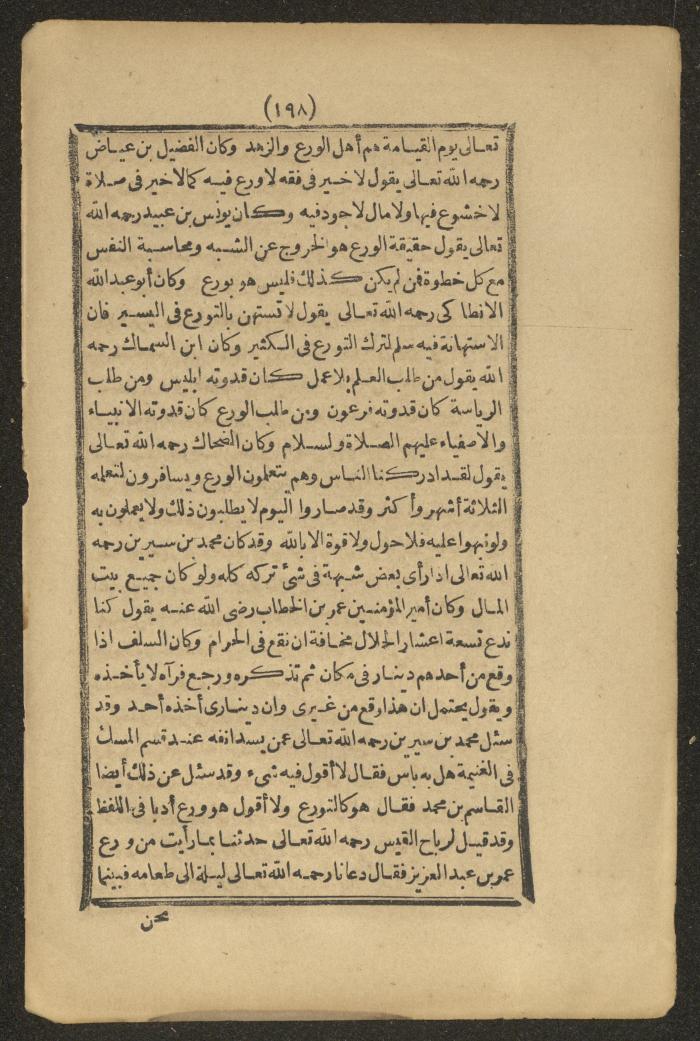 (١٩٨)
تعالى يوم القيامة هم أهل الورع والزهد وكان الفضيل بن عياض
رحمه الله تعالى يقول لا خير فى فقه لا ورع فيه كما لا خير فى صلاة
لا خشوع فيها ولا مال لا جود فيه وكان يونس بن عبيد رحمه الله
تعالى يقول حقيقة الورع هو الخروج عن الشبه ومحاسبة النفس
مع كل خطوة فمن لم يكن كذلك فليس هو بورع وكان أبو عبد الله
الانطاكى رحمه الله تعالى يقول لا تستهن بالتورع فى اليسير فان
الاستهانة فيه سلم لترك التورع فى الكثير وكان ابن السماك رحمه
الله يقول من طلب العلم بلا عمل كان قدوته ابليس ومن طلب
الرياسة كان قدوته فرعون ومن طلب الورع كان قدوته الانبياء
والاصفياء عليهم الصلاة ولسلام وكان الضحاك رحمه الله تعالى
يقول لقد ادركنا الناس وهم يتعلمون الورع ويسافرون لتعلمه
الثلاثة أشهر وأكثر وقد صاروا اليوم لا يطلبون ذلك ولا يعملون به
ولو نبهوا عليه فلا حول ولا قوة الا بالله وقد كان محمد بن سيرين رحمه
الله تعالى اذا رأى بعض شبهة فى شئ تركه كله ولو كان جميع بيت
المال وكان أمير المؤمنين عمر بن الخطاب رضى الله عنه يقول كنا
ندع تسعة اعشار الحلال مخافة ان نقع فى الحرام وكان السلف اذا
وقع من أحدهم دينار فى مكان ثم تذكره ورجع فرآه لا يأخذه
ويقول يحتمل ان هذا وقع من غيرى وان دينارى أخذه أحد وقد
سئل محمد بن سيرين رحمه الله تعالى عمن يسد انفه عند قسم المسك
فى الغنيمة هل به باس فقال لا أقول فيه شىء وقد سئل عن ذلك أيضا
القاسم بن محمد فقال هو كالتورع ولا أقول هو ورع أدبا فى اللفظ
وقد قيل لرباح القيس رحمه الله تعالى حدثنا بما رأيت من ورع
عمر بن عبد العزيز فقال دعانا رحمه الله تعالى ليلة الى طعامه فبينما
نحن